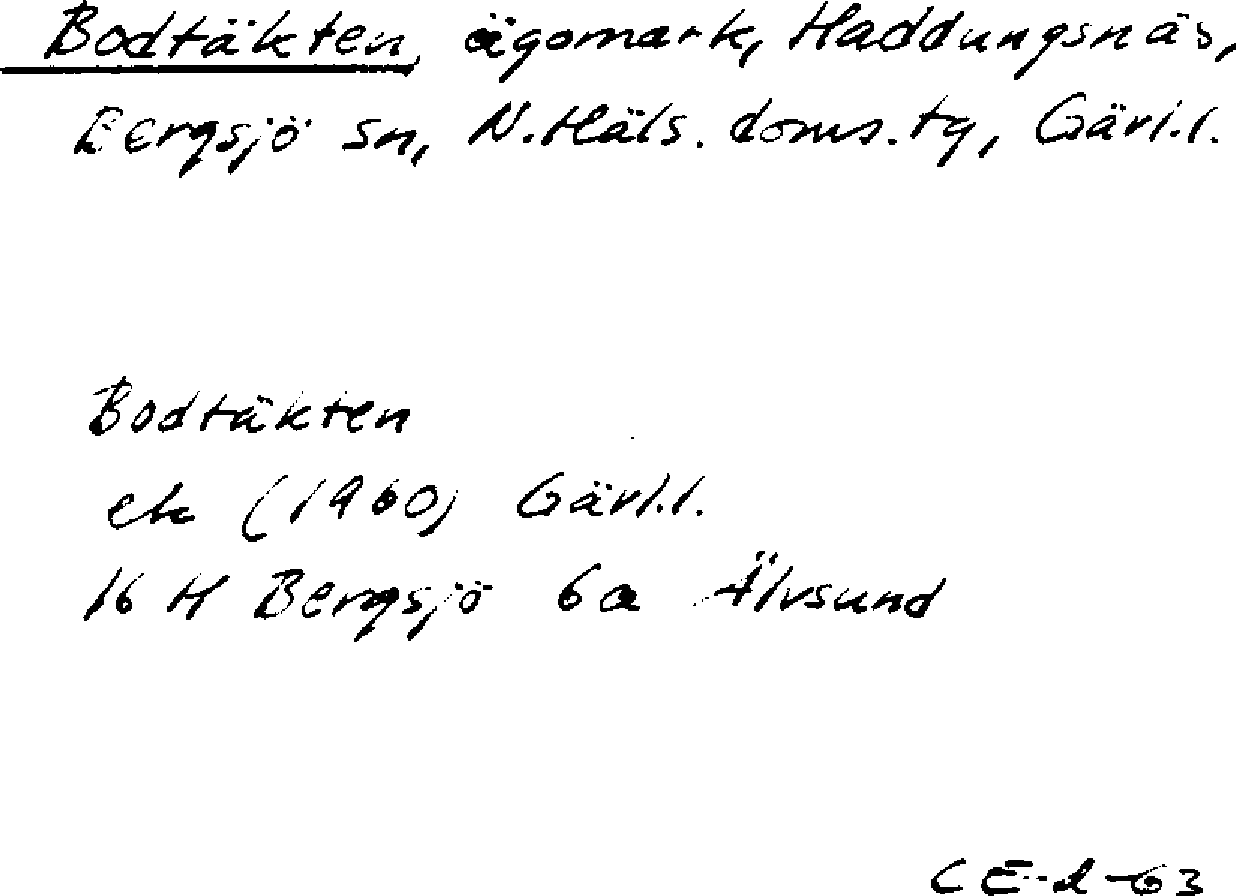 Bodtäkten, ägomark, Haddungsnäs,
Bergsjö sn, N. Häls. doms. tg, Gävl. l.
Bodtäkten
ek (1960) Gävl. l.
16 H Bergsjö 6a Älvsund
CE-d-63